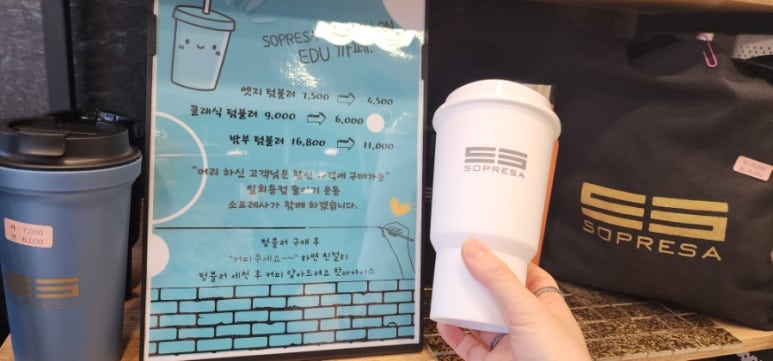 SOPRESA ON
EDU 까페.
엣지 텀블러 7,500 ⇨ 4,500
클래식 텀블러 9,000 ⇨ 6,000
밤부 텀블러 16,800 ⇨ 11,000
"머리 하신 고객님은 할인 가격에 구매가능"
일회용컵 줄이기 운동
소프레사가 함께 하겠습니다.
텀블러 구매 후
"커피주세요~~" 하면 친절히
텀블러 세척 후 커피 담아드려요
7,000
6,000
SOPRESA
SOPRESA
SOPRESA